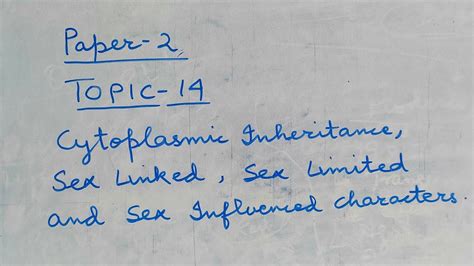 Paper-2
TOPIC-14
Cytoplasmic Inheritance,
Sex Linked, Sex Limited
and Sex Influenced characters.